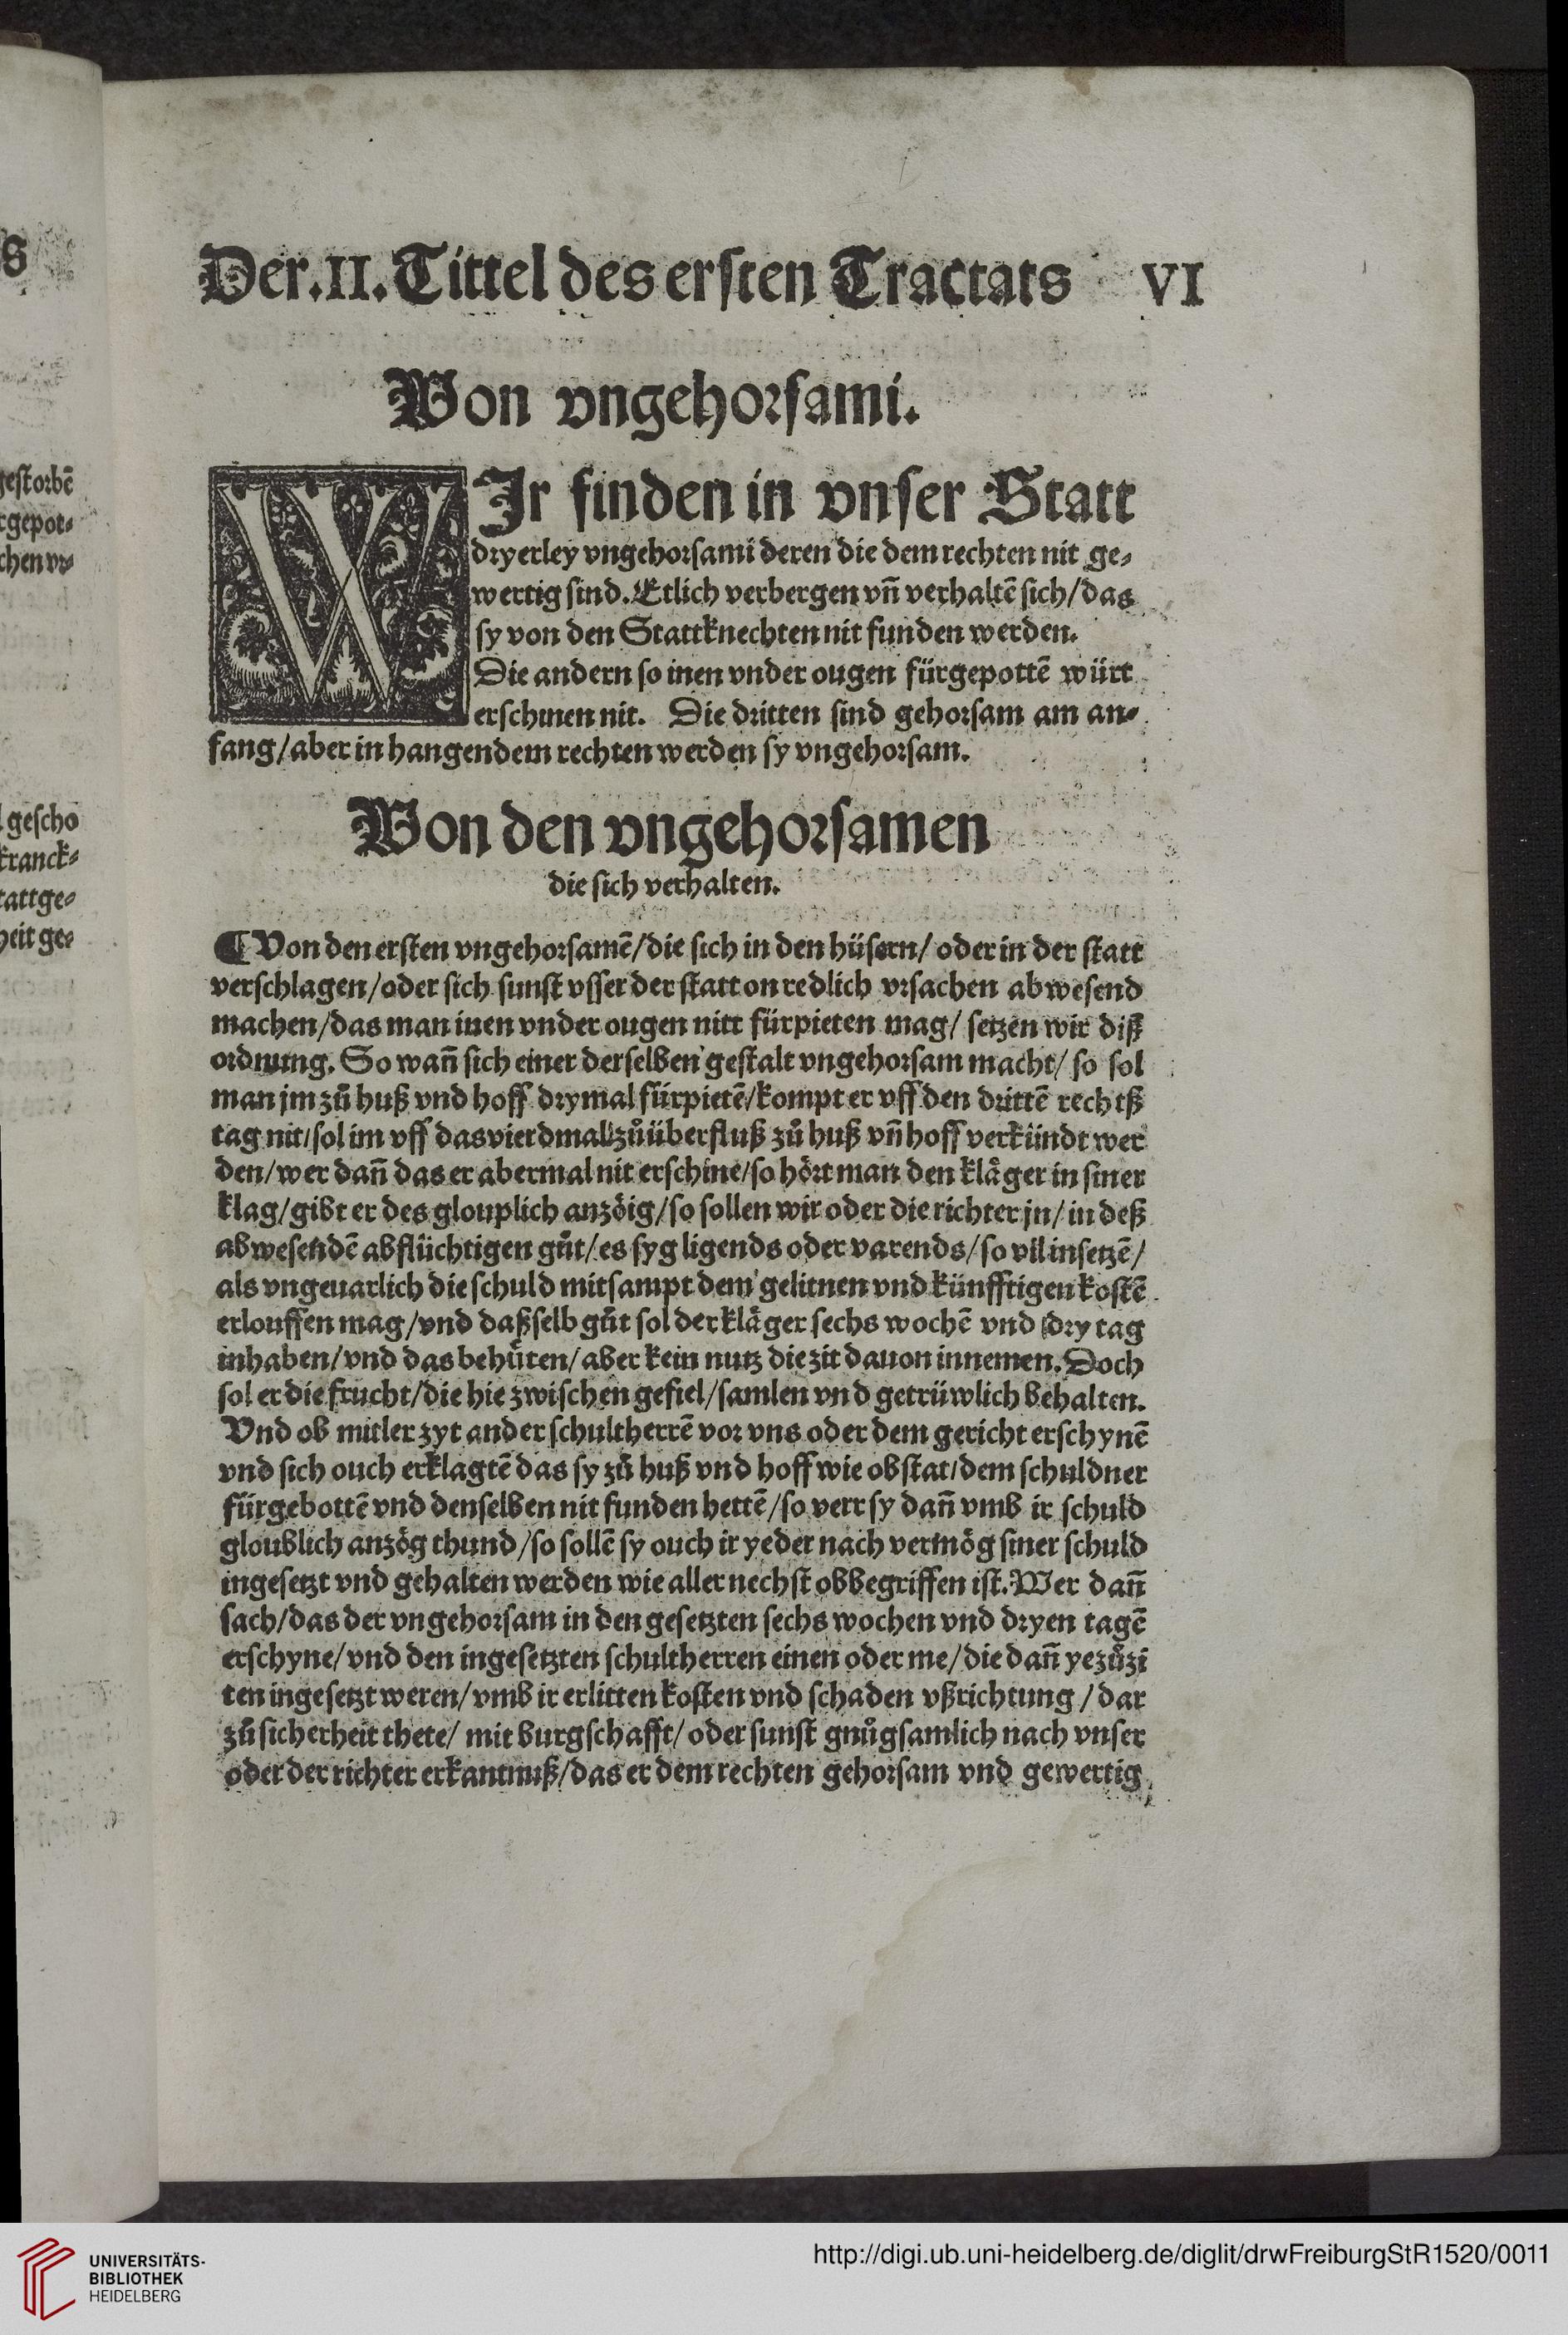 s
gestorbē
rgepot⸗
chen vr⸗
gescho
kranck⸗
tattge⸗
heit ge⸗
Der .II. Tittel des ersten Tractats VI
Von vngehorsami.
WIr finden in vnser Statt
dryerley vngehorsami deren die dem rechten nit ge⸗
wertig sind. Etlich verbergen vn̄ verhaltē sich/ das
sy von den Stattknechten nit funden werden.
Die andern so inen vnder ougen fürgepottē würt
erschinen nit. Die dritten sind gehorsam am an⸗
fang/ aber in hangendem rechten werden sy vngehorsam.
Von den vngehorsamen
die sich verhalten.
¶ Von den ersten vngehorsamē/ die sich in den hüsern/ oder in der statt
verschlagen/ oder sich sunst vsser der statt on redlich vrsachen abwesend
machen/ das man inen vnder ougen nitt fürpieten mag/ setzen wir diß
ordnung. So wan̄ sich einer derselben gestalt vngehorsam macht/ so sol
man jm zů huß vnd hoff drymal fürpietē/ kompt er vff den drittē rechtß
tag nit/ sol im vff das vierdmal zů überfluß zů huß vn̄ hoff verkündt wer
den/ wer dan̄ das er abermal nit erschine/ so hört man den kläger in siner
klag/ gibt er des glouplich anzöig/ so sollen wir oder die richter jn/ in deß
abwesendē abflüchtigen gůt/ es syg ligends oder varends/ so vil insetzē/
als vngeuarlich die schuld mitsampt dem gelitnen vnd künfftigen kostē
erlouffen mag/ vnd daßselb gůt sol der kläger sechs wochē vnd dry tag
inhaben/ vnd das behüten/ aber kein nutz die zit dauon innemen. Doch
sol er die frucht/ die hie zwischen gefiel/ samlen vnd getrüwlich behalten.
Vnd ob mitler zyt ander schultherrē vor vns oder dem gericht erschynē
vnd sich ouch erklagtē das sy zů huß vnd hoff wie obstat/ dem schuldner
fürgebottē vnd denselben nit funden hettē/ so verr sy dan̄ vmb ir schuld
gloublich anzög thund/ so sollē sy ouch ir yeder nach vermög siner schuld
ingesetzt vnd gehalten werden wie aller nechst obbegriffen ist. Wer dan̄
sach/ das der vngehorsam in den gesetzten sechs wochen vnd dryen tagē
erschyne/ vnd den ingesetzten schultherren einen oder me/ die dan̄ ye zů zi
ten ingesetzt weren/ vmb ir erlitten kosten vnd schaden vßrichtung/ dar
zů sicherheit thete/ mit burgschafft/ oder sunst gnůgsamlich nach vnser
oder der richter erkantnuß/ das er dem rechten gehorsam vnd gewertig
UNIVERSITÄTS-
BIBLIOTHEK
HEIDELBERG
http://digi.ub.uni-heidelberg.de/diglit/drwFreiburgStR1520/0011